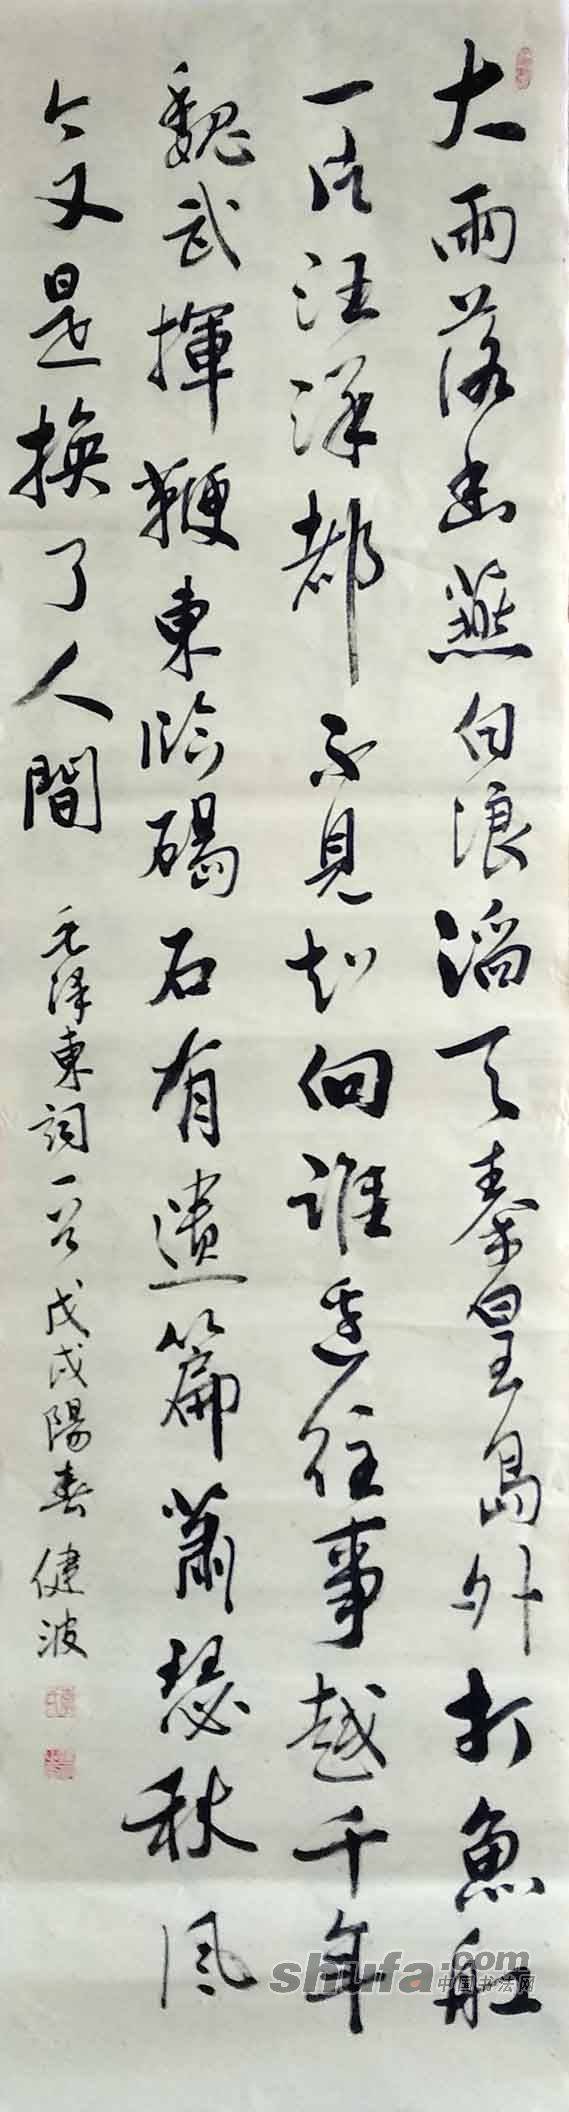 大雨落幽燕白浪滔天秦皇島外打魚船
一片汪洋都不見知向誰邊往事越千年
魏武揮鞭東臨碣石有遺篇蕭瑟秋風
今又是換了人間
毛澤東詞一首戊戌陽春健波
shufa.com
中国书法网